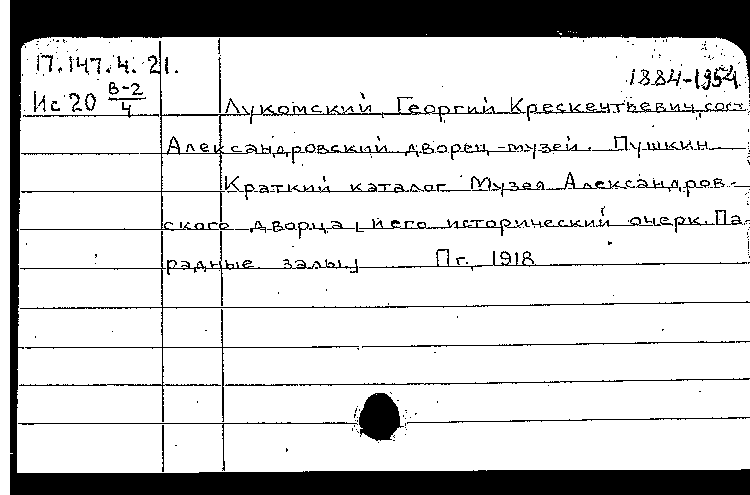 17.147.4.21.
1884-1954
Ис 20 В-2/4
Лукомский, Георгий Крескентьевич, сост.
Александровский дворец-музей. Пушкин.
Краткий каталог Музея Александров-
ского дворца [и его исторический очерк. Па-
радные залы.] Пг., 1918